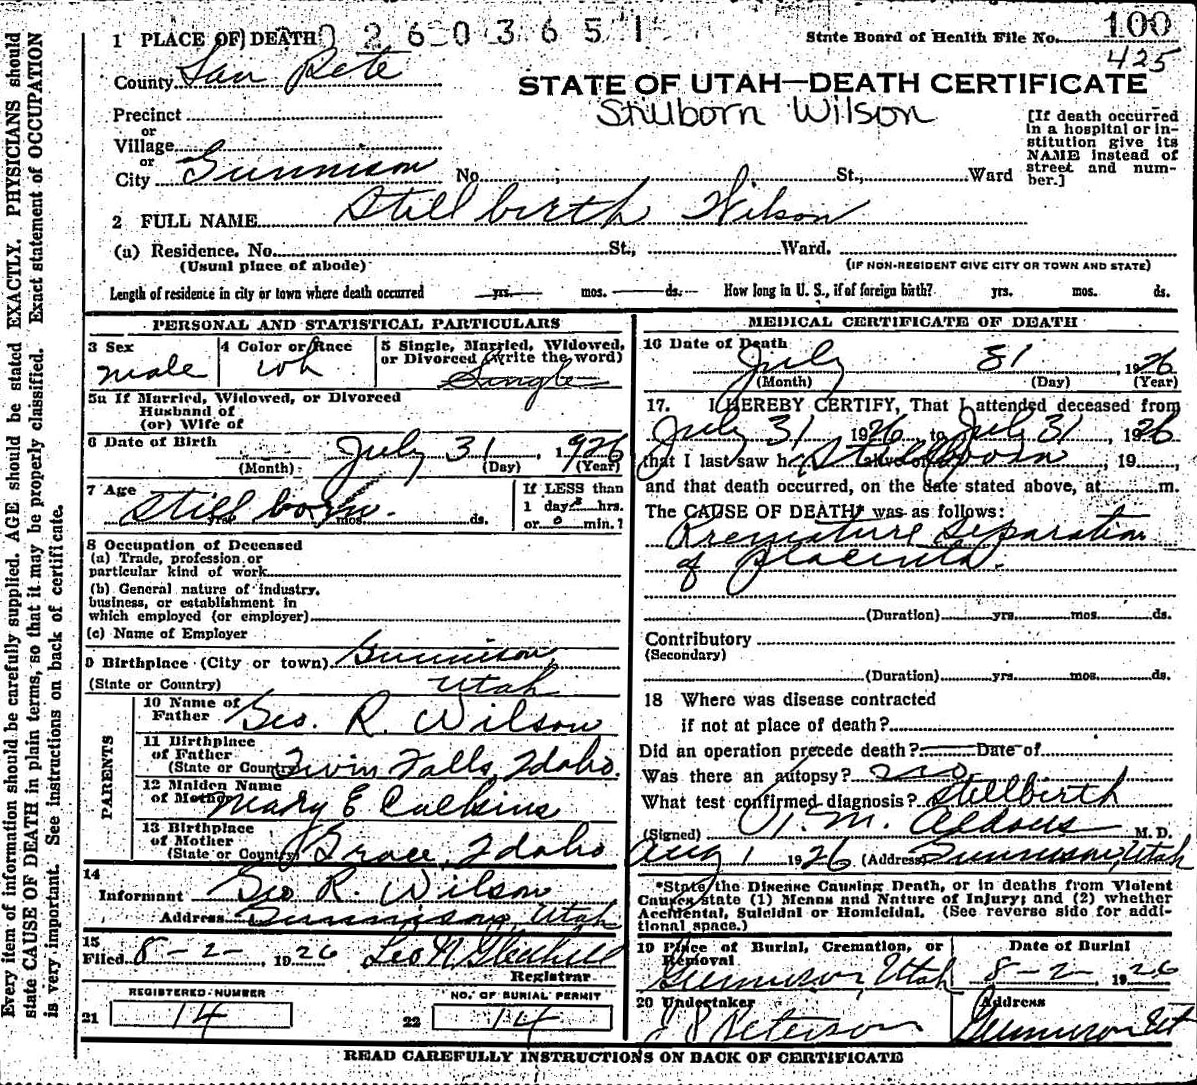 Every item of information should be carefully supplied. AGE should be stated EXACTLY. PHYSICIANS should
state CAUSE OF DEATH in plain terms, so that it may be properly classified. Exact statement of OCCUPATION
is very important. See instructions on back of certificate.
1 PLACE OF DEATH 0 2 6 0 3 6 5 1
State Board of Health File No. 100
425
County San Pete
STATE OF UTAH—DEATH CERTIFICATE
Stillborn Wilson
Precinct
or
Village
or
City Gunnison No. ; St., Ward
[If death occurred
in a hospital or in-
stitution give its
NAME instead of
street and num-
ber.]
2 FULL NAME Still birth Wilson
(a) Residence. No. St., Ward.
(Usual place of abode) (IF NON-RESIDENT GIVE CITY OR TOWN AND STATE)
Length of residence in city or town where death occurred yrs. mos. ds. How long in U. S., if of foreign birth? yrs. mos. ds.
PERSONAL AND STATISTICAL PARTICULARS
3 Sex male
4 Color or Race Wh
5 Single, Married, Widowed,
or Divorced (write the word)
Single
5a If Married, Widowed, or Divorced
Husband of
(or) Wife of
6 Date of Birth July 31, 1926
(Month) (Day) (Year)
7 Age Still born
yrs. mos. ds.
If LESS than
1 day hrs.
or min.?
8 Occupation of Deceased
(a) Trade, profession or
particular kind of work
(b) General nature of industry,
business, or establishment in
which employed (or employer)
(c) Name of Employer
9 Birthplace (City or town) Gunnison,
(State or Country) Utah
PARENTS
10 Name of
Father Geo. R. Wilson
11 Birthplace
of Father
(State or Country) Twin Falls, Idaho.
12 Maiden Name
of Mother Mary E Culkins
13 Birthplace
of Mother
(State or Country) Grace, Idaho
14
Informant Geo R. Wilson
Address Gunnison, Utah
15
Filed 8-2-, 1926
Registrar
REGISTERED NUMBER
21 14
NO. OF BURIAL PERMIT
22 14
MEDICAL CERTIFICATE OF DEATH
16 Date of Death
July 31, 1926
(Month) (Day) (Year)
17. I HEREBY CERTIFY, That I attended deceased from
July 31 1926, to July 31, 1926
that I last saw h alive on Stillborn, 19
and that death occurred, on the date stated above, at m.
The CAUSE OF DEATH was as follows:
Premature Separation
of placenta.
(Duration) yrs. mos. ds.
Contributory
(Secondary)
(Duration) yrs. mos. ds.
18 Where was disease contracted
if not at place of death?
Did an operation precede death? Date of
Was there an autopsy? no
What test confirmed diagnosis? Stillbirth
(Signed) M. D.
Aug 1 1926 (Address) Gunnison, Utah
*State the Disease Causing Death, or in deaths from Violent
Causes state (1) Means and Nature of Injury; and (2) whether
Accidental, Suicidal or Homicidal. (See reverse side for addi-
tional space.)
19 Place of Burial, Cremation, or
Removal
Gunnison, Utah
Date of Burial
8-2-, 1926
20 Undertaker
Peterson
Address
Gunnison Ut
READ CAREFULLY INSTRUCTIONS ON BACK OF CERTIFICATE